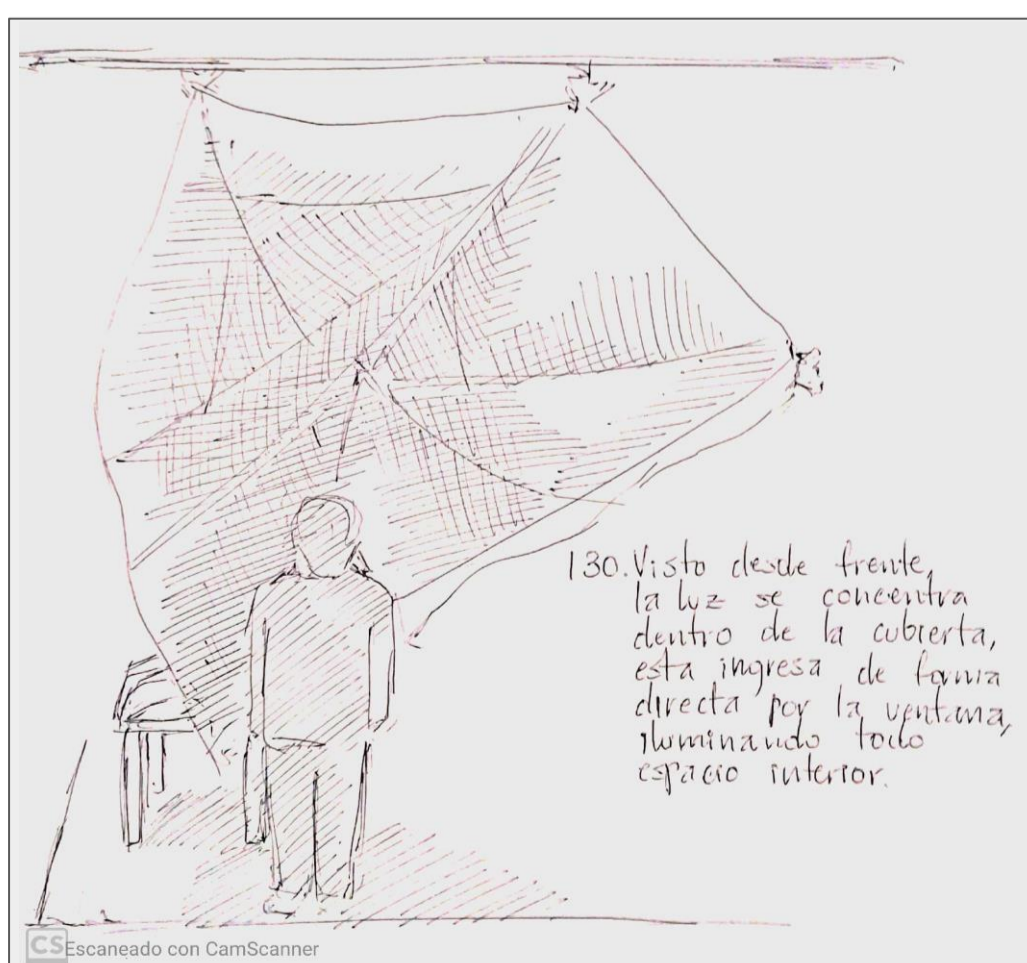 130. Visto desde frente,
la luz se concentra
dentro de la cubierta,
esta ingresa de forma
directa por la ventana,
iluminando todo
espacio interior.
CS Escaneado con CamScanner